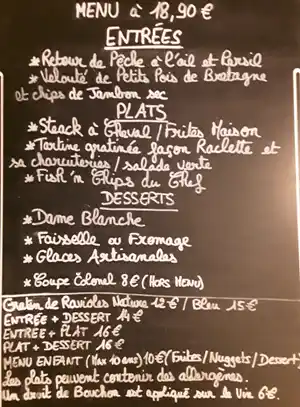 MENU à 18,90 €
ENTRÉES
* Retour de Pêche à l'ail et Persil
* Velouté de Petits Pois de Bretagne
et chips de Jambon sec
PLATS
* Steack à Cheval / Frites Maison
* Tartine gratinée façon Raclette et
sa charcuteries / salade verte
* Fish'n Chips du Chef
DESSERTS
* Dame Blanche
* Faisselle ou Fromage
* Glaces Artisanales
* Coupe Colonel 8€ (HORS MENU)
Gratin de Ravioles Nature 12€ / Bleu 15€
ENTRÉE + DESSERT 14€
ENTREE + PLAT 16€
PLAT + DESSERT 16€
MENU ENFANT (Max 10 ans) 10€ (Frites/Nuggets/Dessert)
Les plats peuvent contenir des allergènes.
Un droit de Bouchon est appliqué sur le Vin 6€.